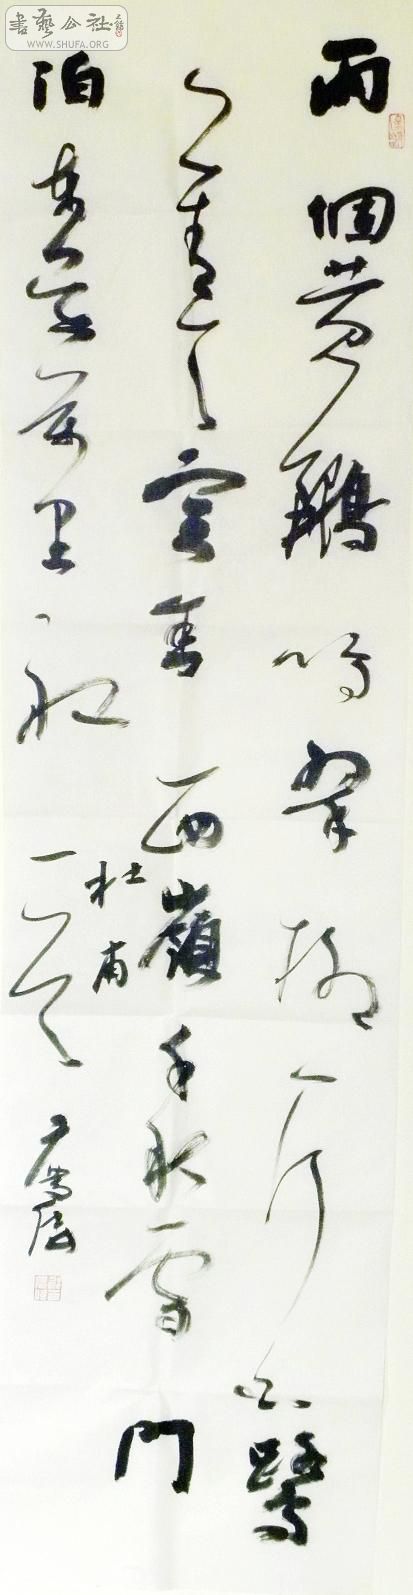 書藝公社
WWW.SHUFA.ORG
两個黄鸝鳴翠柳一行白鷺
上青天窗含西嶺千秋雪門
泊東吳萬里船
杜甫